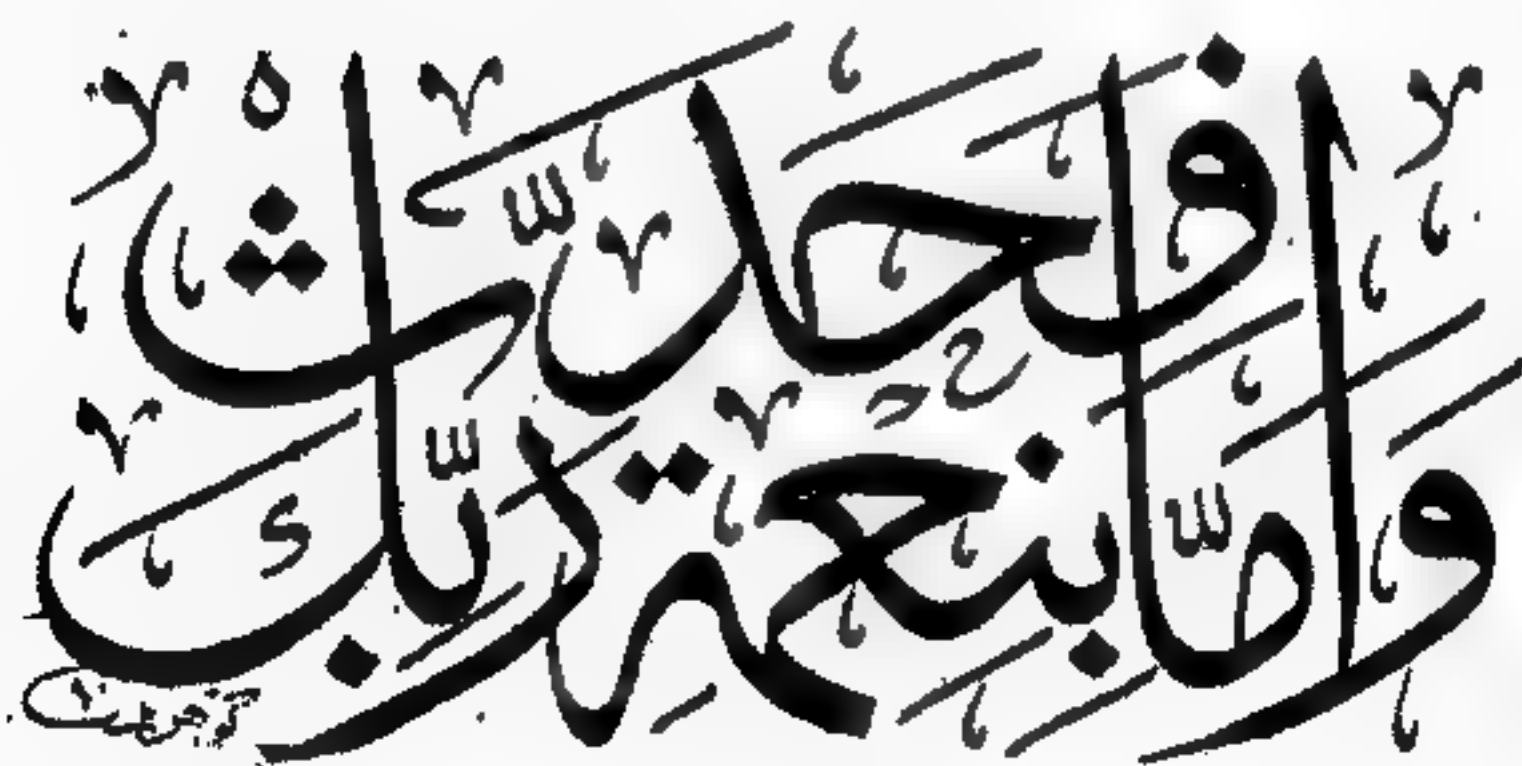 وَاَمَّا بِنِعْمَةِ رَبِّكَ
فَحَدِّثْ